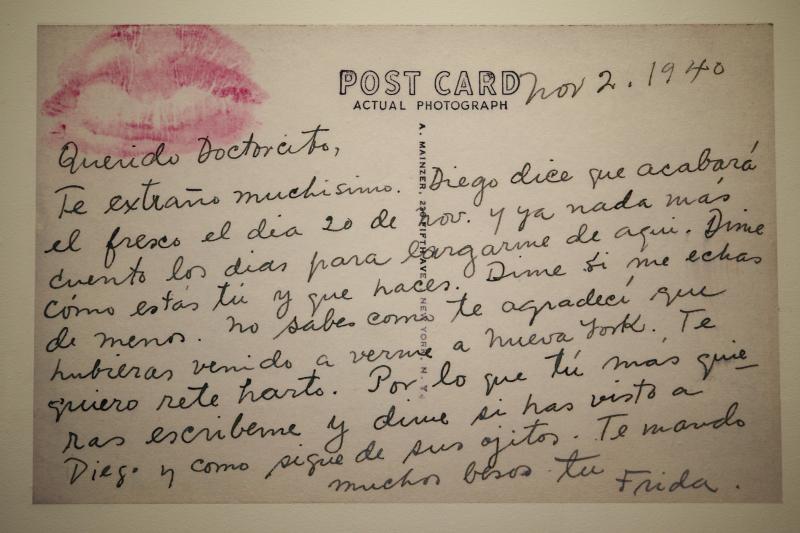 POST CARD
ACTUAL PHOTOGRAPH
Nov 2. 1940
A. MAINZER, FIFTH AVE. NEW YORK, N.Y.
Querido Doctorcito,
Te extraño muchisimo. Diego dice que acabará
el fresco el dia 20 de Nov. y ya nada más
cuento los dias para largarme de aqui. Dime
cómo estás tú y que haces. Dime si me echas
de menos. No sabes como te agradecí que
hubieras venido a verme a Nueva York. Te
quiero rete harto. Por lo que tú más quie-
ras escribeme y dime si has visto a
Diego y como sigue de sus ojitos. Te mando
muchos besos tu Frida.